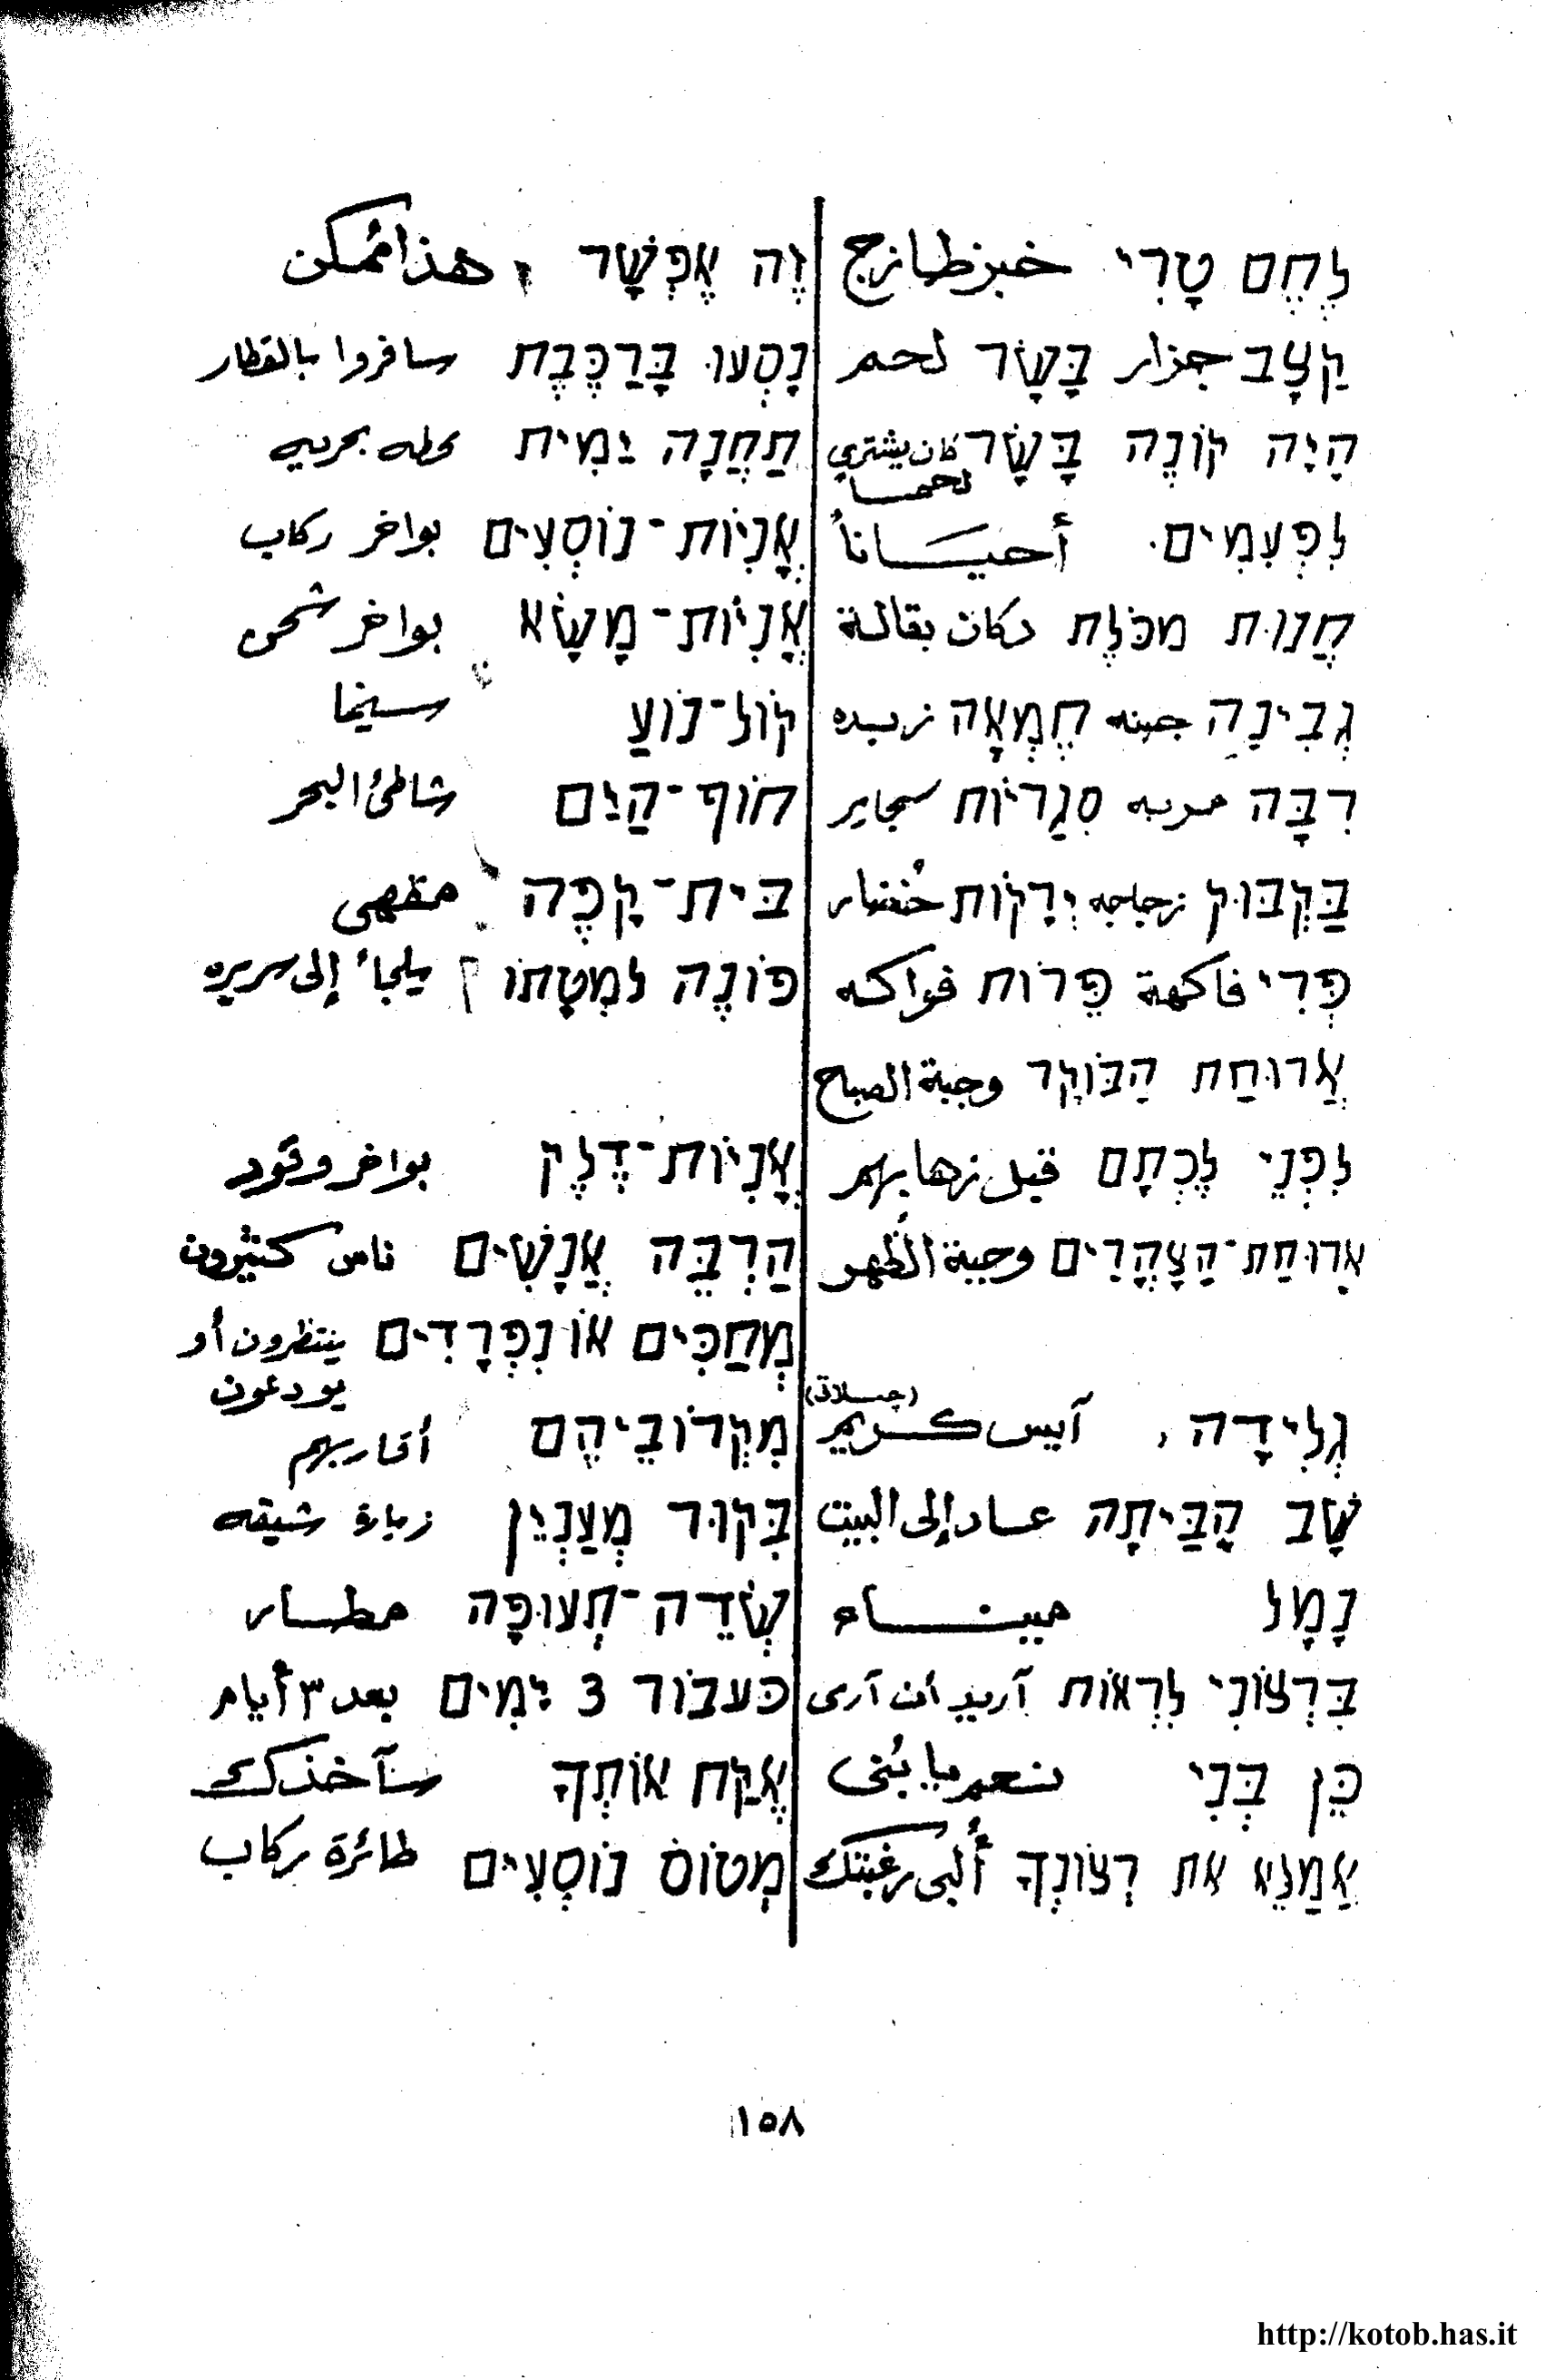 לֶחֶם טָרִי خبز طازج
קַצָּב جزار בָּשָׂר لحم
הָיָה קוֹנֶה בָּשָׂר كان يشتري
لحمــا
לִפְעִמִים. أحيــاناً
חֲנוּת מכֹּלֶת دكان بقالة
גְבִינָה جبنه חֶמְאָה زبده
רִבָּה مربه סִגַרִיוֹת سجاير
בַּקְבּוּק زجاجه יְרָקוֹת خُضار
פְּרִי فاكهة פֵּרוֹת فواكه
אֲרוּחַת הַבּוֹקֶר وجبة الصباح
לִפְנֵי לֶכְתָם قبل زهابهم
אֲרוּחַת־הַצָהֳרַיִם وجبة الظُهر
(جــلاق)
גְלִידָה, آيس كــريم
שָׁב הָבַּיְתָה عــاد إلى البيت
נָמָל مينــاء
בִּרְצוֹנִי לִרְאוֹת آريد ان آرى
כֵּן בְּנִי نعم يا بُنى
אֲמַלֵּא אֶת רְצוֹנְךָ أُلبى رغبتك
זֶה אֶפְשָׁר , هذا مُمكن
נָסְעוּ בָּרַכֶּבֶת سافروا بالقطار
תַחֲנָה יַמִית محطه بحريه
אֳנִיּוֹת־נוֹסְעִים بواخر ركاب
אֳנִיּוֹת־מָשָׂא بواخر شحن
קוֹל־נוֹעַ سينما
חוֹף־הַיָּם شاطئ البحر
בֵּית־קָפֶה مقهى
פּוֹנֶה למִטָתוֹ يلجأ إلى سريره
אֳנִיּוֹת־דֶלֶק بواخر وقود
הַרְבֵּה אֲנָשִׁים ناس كثيرون
מְחַכִּים אוֹ נִפְרָדִים ينتظرون أو
يودعون
מִקְרוֹבֵיהֶם أقاربهم
בִּקוּר מְעַנְיֵן زيارة شيقه
שְׂדֵה־תְעוּפָה مطــار
כּעבוֹר 3 יָמִים بعد ٣ أيام
אֶקַּח אוֹתְךָ سآخذك
מְטוֹס נוֹסְעִים طائرة ركاب
١٥٨
http://kotob.has.it